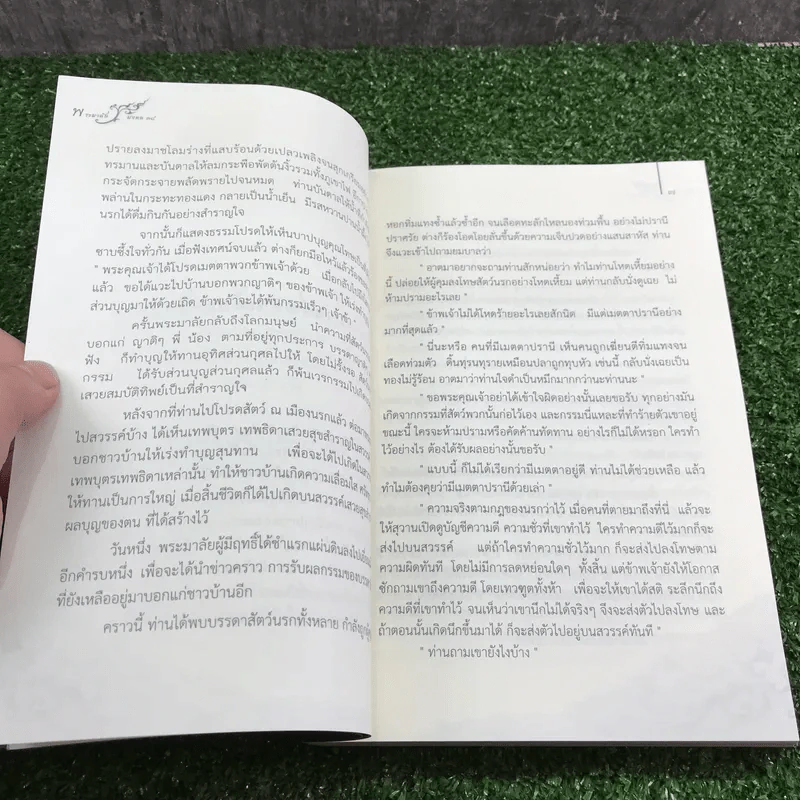 ปรายลงมาชโลมร่างที่แสบร้อนด้วยเปลวเพลิงจนสุกเกรียม
ทรมานและบันดาลให้ลมกระพือพัดต้นงิ้วรวมทั้งภูเขาไฟ
กระจัดกระจายพลัดพรายไปจนหมด ท่านบันดาลให้
พล่านในกระทะทองแดง กลายเป็นน้ำเย็น มีรสหวาน
นรกได้ดื่มกินกันอย่างสำราญใจ
จากนั้นก็แสดงธรรมโปรดให้เห็นบาปบุญคุณโทษ
ซาบซึ้งใจทั่วกัน เมื่อฟังเทศน์จบแล้ว ต่างก็ยกมือไหว้แล้ว
" พระคุณเจ้าได้โปรดเมตตาพวกข้าพเจ้าด้วย เมื่อกลับไป
แล้ว ขอได้แวะไปบ้านบอกพวกญาติๆ ของข้าพเจ้า ให้เร่งทำ
ส่วนบุญมาให้ด้วยเถิด ข้าพเจ้าจะได้พ้นกรรมเร็วๆ เจ้าข้า "
ครั้นพระมาลัยกลับถึงโลกมนุษย์ นำความที่สัตว์
บอกแก่ ญาติๆ พี่ น้อง ตามที่อยู่ทุกประการ บรรดาญาติ
ฟัง ก็ทำบุญให้ทานอุทิศส่วนกุศลไปให้ โดยไม่รั้งรอ
กรรม ได้รับส่วนบุญส่วนกุศลแล้ว ก็พ้นเวรกรรมไปเกิด
เสวยสมบัติทิพย์เป็นที่สำราญใจ
หลังจากที่ท่านไปโปรดสัตว์ ณ เมืองนรกแล้ว ต่อมา
ไปสวรรค์บ้าง ได้เห็นเทพบุตร เทพธิดาเสวยสุขสำราญใน
บอกชาวบ้านให้เร่งทำบุญสุนทาน เพื่อจะได้ไปเกิดใน
เทพบุตรเทพธิดาเหล่านั้น ทำให้ชาวบ้านเกิดความเลื่อมใส
ให้ทานเป็นการใหญ่ เมื่อสิ้นชีวิตก็ได้ไปเกิดบนสวรรค์เสวยสุข
ผลบุญของตน ที่ได้สร้างไว้
วันหนึ่ง พระมาลัยผู้มีฤทธิ์ได้ชำแรกแผ่นดินลงไป
อีกคำรบหนึ่ง เพื่อจะได้นำข่าวคราว การรับผลกรรมของ
ที่ยังเหลืออยู่มาบอกแก่ชาวบ้านอีก
คราวนี้ ท่านได้พบบรรดาสัตว์นรกทั้งหลาย กำลัง
หอกทิ่มแทงซ้ำแล้วซ้ำอีก จนเลือดทะลักไหลนองท่วมพื้น อย่างไม่ปรานี
ปราศรัย ต่างก็ร้องโอดโอยลั่นขึ้นด้วยความเจ็บปวดอย่างแสนสาหัส ท่าน
จึงแวะเข้าไปถามยมบาลว่า
" อาตมาอยากจะถามท่านสักหน่อยว่า ทำไมท่านโหดเหี้ยมอย่าง
นี้ ปล่อยให้ผู้คุมลงโทษสัตว์นรกอย่างโหดเหี้ยม แต่ท่านกลับนั่งดูเฉย ไม่
ห้ามปรามอะไรเลย "
" ข้าพเจ้าไม่ได้โหดร้ายอะไรเลยสักนิด มีแต่เมตตาปรานีอย่าง
มากที่สุดแล้ว "
" นี่นะหรือ คนที่มีเมตตาปรานี เห็นคนถูกเฆี่ยนตีทิ่มแทงจน
เลือดท่วมตัว ดิ้นทุรนทุรายเหมือนปลาถูกทุบหัว เช่นนี้ กลับนั่งเฉยเป็น
ทองไม่รู้ร้อน อาตมาว่าท่านใจดำเป็นหมึกมากกว่านะท่านนะ "
" ขอพระคุณเจ้าอย่าได้เข้าใจผิดอย่างนั้นเลยขอรับ ทุกอย่างมัน
เกิดจากกรรมที่สัตว์พวกนั้นก่อไว้เอง และกรรมนี่แหละที่ทำร้ายตัวเขาอยู่
ขณะนี้ ใครจะห้ามปรามหรือคัดค้านทัดทาน อย่างไรก็ไม่ได้หรอก ใครทำ
ไว้อย่างไร ต้องได้รับผลอย่างนั้นขอรับ "
" แบบนี้ ก็ไม่ได้เรียกว่ามีเมตตาอยู่ดี ท่านไม่ได้ช่วยเหลือ แล้ว
ทำไมต้องคุยว่ามีเมตตาปรานีด้วยเล่า "
" ความจริงตามกฎของนรกว่าไว้ เมื่อคนที่ตายมาถึงที่นี่ แล้วจะ
ให้สุวานเปิดดูบัญชีความดี ความชั่วที่เขาทำไว้ ใครทำความดีไว้มากก็จะ
ส่งไปบนสวรรค์ แต่ถ้าใครทำความชั่วไว้มาก ก็จะส่งไปลงโทษตาม
ความผิดทันที โดยไม่มีการลดหย่อนใดๆ ทั้งสิ้น แต่ข้าพเจ้ายังให้โอกาส
ซักถามเขาถึงความดี โดยเทวฑูตทั้งห้า เพื่อจะให้เขาได้สติ ระลึกนึกถึง
ความดีที่เขาทำไว้ จนเห็นว่าเขานึกไม่ได้จริงๆ จึงจะส่งตัวไปลงโทษ และ
ถ้าตอนนั้นเกิดนึกขึ้นมาได้ ก็จะส่งตัวไปอยู่บนสวรรค์ทันที "
" ท่านถามเขายังไงบ้าง "